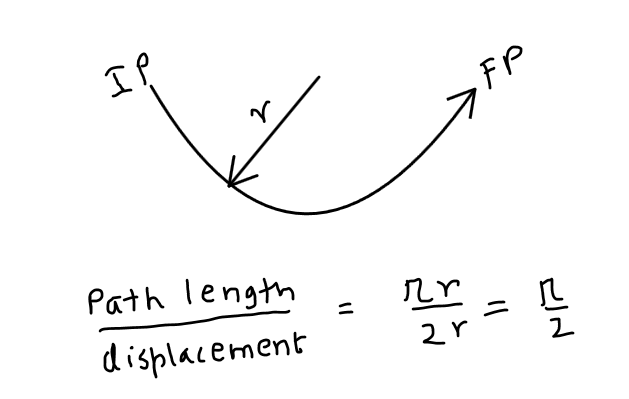 IP
FP
r
Path length / displacement = πr / 2r = π / 2